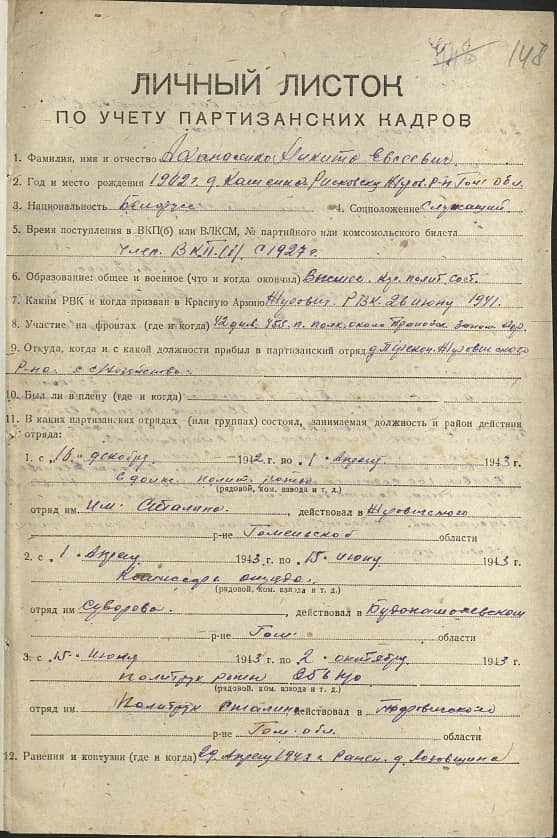 148
ЛИЧНЫЙ ЛИСТОК
ПО УЧЕТУ ПАРТИЗАНСКИХ КАДРОВ
1. Фамилия, имя и отчество Афанасенко Никита Евсеевич
2. Год и место рождения 1902 г. д. Гом. обл.
3. Национальность Белорус 4. Соцположение Служащий
5. Время поступления в ВКП(б) или ВЛКСМ, № партийного или комсомольского билета
Член ВКП(б) с 1927 г.
6. Образование: общее и военное (что и когда окончил) полит. сост.
7. Каким РВК и когда призван в Красную Армию Журович. РВК. 26 июня 1941.
8. Участие на фронтах (где и когда) 42 див. 455 п. полк.
9. Откуда, когда и с какой должности прибыл в партизанский отряд Журовичского
Р-на с
10. Был ли в плену (где и когда)
11. В каких партизанских отрядах (или группах) состоял, занимаемая должность и район действия
отряда:
1. с „ декабря 1942 г. по „1„ Апреля 1943 г.
В должн. полит. роты
(рядовой, ком. взвода и т. д.)
отряд им. Сталина, действовал в Журовичского
р-не Гомельской области
2. с „1„ Апреля 1943 г. по „15„ июня 1943 г
Комиссара отряда.
(рядовой, ком. взвода и т. д.)
отряд им Суворова., действовал в
р-не Гом. области
3. с „15„ июня 1943 г. по „2„ октября 1943 г.
политрук роты
(рядовой, ком. взвода и т. д.)
отряд им. Политрук Сталина действовал в
р-не Гом. обл. области
12. Ранения и контузии (где и когда) 29 Апреля 1943 г. Ранен. д.